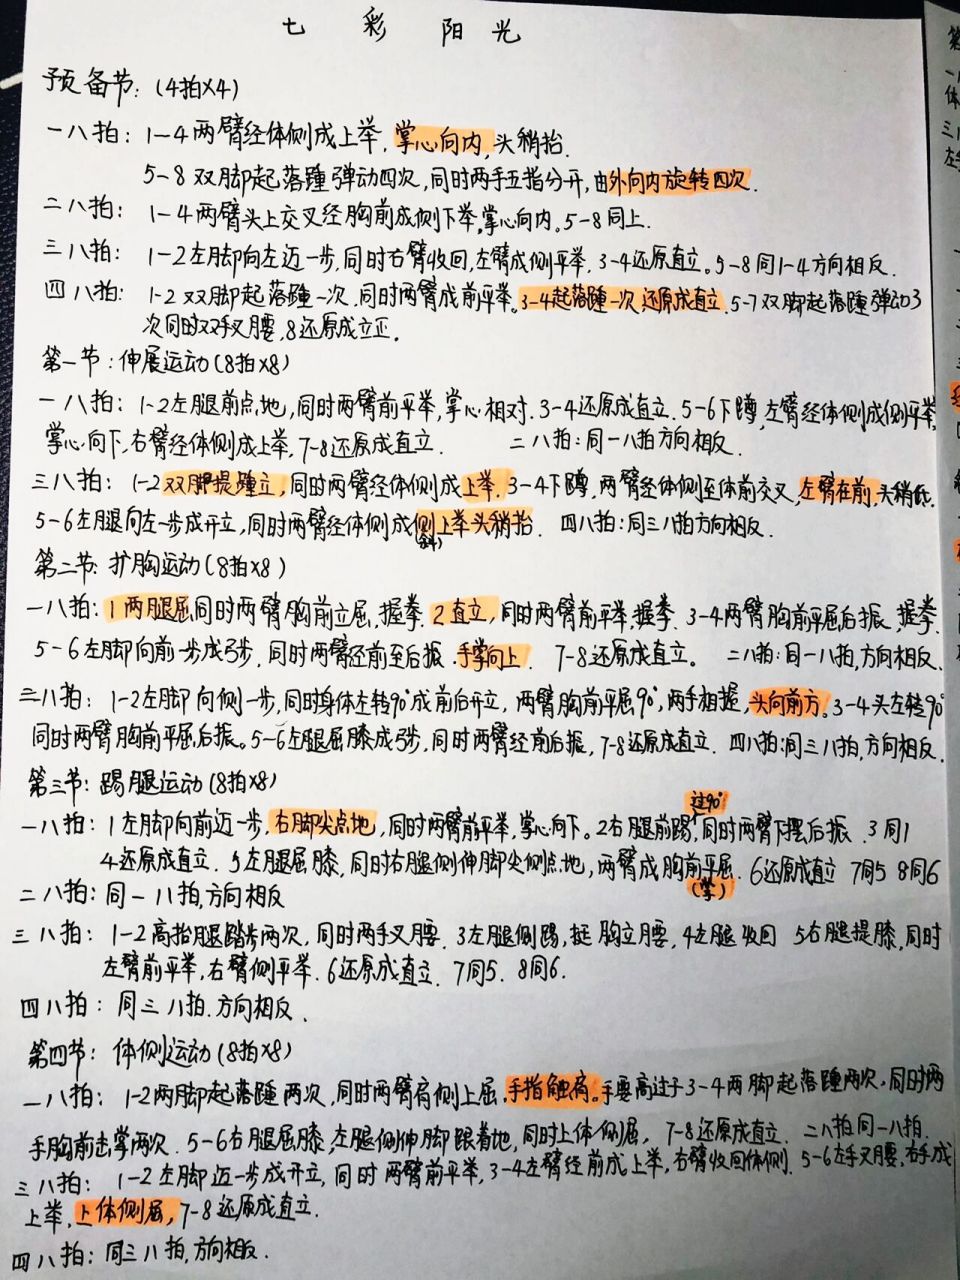 七彩阳光
预备节：(4拍×4)
一八拍：1-4两臂经体侧成上举，掌心向内，头稍抬.
5-8双脚起落踵弹动四次，同时两手五指分开，由外向内旋转四次.
二八拍：1-4两臂头上交叉经胸前成侧下举，掌心向内。5-8同上.
三八拍：1-2左脚向左迈一步，同时右臂收回，左臂成侧平举，3-4还原直立。5-8同1-4方向相反.
四八拍：1-2双脚起落踵一次，同时两臂成前平举。3-4起落踵一次，还原成直立.5-7双脚起落踵弹动3
次同时双手叉腰，8还原成立正。
第一节：伸展运动(8拍×8)
一八拍：1-2左腿前点地，同时两臂前平举，掌心相对.3-4还原成直立.5-6下蹲，左臂经体侧成侧平举，
掌心向下，右臂经体侧成上举，7-8还原成直立. 二八拍：同一八拍方向相反.
三八拍：1-2双脚提踵立，同时两臂经体侧成上举.3-4下蹲，两臂经体侧至体前交叉，左臂在前，头稍低.
5-6左腿向左一步成开立，同时两臂经体侧成侧上举头稍抬. 四八拍：同三八拍方向相反.
(斜)
第二节：扩胸运动(8拍×8)
一八拍：1两腿屈，同时两臂胸前立屈，握拳.2直立，同时两臂前平举，握拳.3-4两臂胸前平屈后振，握拳.
5-6左脚向前一步成弓步，同时两臂经前至后振，手掌向上. 7-8还原成直立。 二八拍：同一八拍，方向相反.
三八拍：1-2左脚向侧一步，同时身体左转90°成前后开立，两臂胸前平屈90°，两手相握，头向前方。3-4头左转90°
同时两臂胸前平屈后振。5-6左腿屈膝成弓步，同时两臂经前后振，7-8还原成直立. 四八拍：同三八拍，方向相反.
第三节：踢腿运动(8拍×8)
过90°
一八拍：1左脚向前迈一步，右脚尖点地，同时两臂前平举，掌心向下。2右腿前踢，同时两臂下摆后振. 3同1
4还原成直立. 5左腿屈膝，同时右腿侧伸脚尖侧点地，两臂成胸前平屈. 6还原成直立 7同5 8同6
(掌)
二八拍：同一八拍，方向相反
三八拍：1-2高抬腿踏步两次，同时两手叉腰. 3左腿侧踢，挺胸立腰，4左腿收回 5右腿提膝，同时
左臂前平举，右臂侧平举. 6还原成直立. 7同5. 8同6.
四八拍：同三八拍.方向相反.
第四节：体侧运动(8拍×8)
一八拍：1-2两脚起落踵两次，同时两臂肩侧上屈，手指触肩。手要高过于3-4两脚起落踵两次，同时两
手胸前击掌两次. 5-6右腿屈膝，左腿侧伸脚跟着地，同时上体侧屈， 7-8还原成直立. 二八拍同一八拍.
三八拍：1-2左脚迈一步成开立，同时两臂前平举，3-4左臂经前成上举，右臂收回体侧. 5-6左手叉腰，右手成
上举，上体侧屈，7-8还原成直立.
四八拍：同三八拍，方向相反.